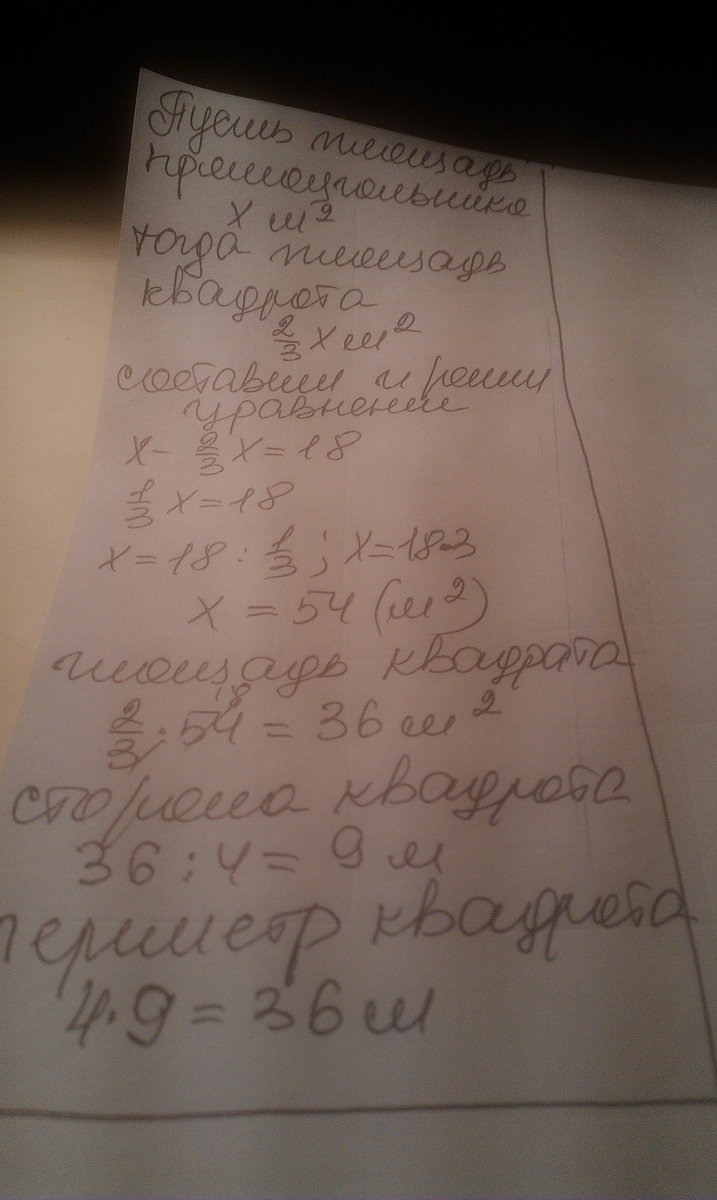 Пусть площадь
прямоугольника
x м²
тогда площадь
квадрата
2/3 x м²
составим и решим
уравнение
x - 2/3 x = 18
1/3 x = 18
x = 18 : 1/3 ; x = 18·3
x = 54 (м²)
площадь квадрата
2/3 · 54 18 = 36 м²
сторона квадрата
36 : 4 = 9 м
периметр квадрата
4 · 9 = 36 м